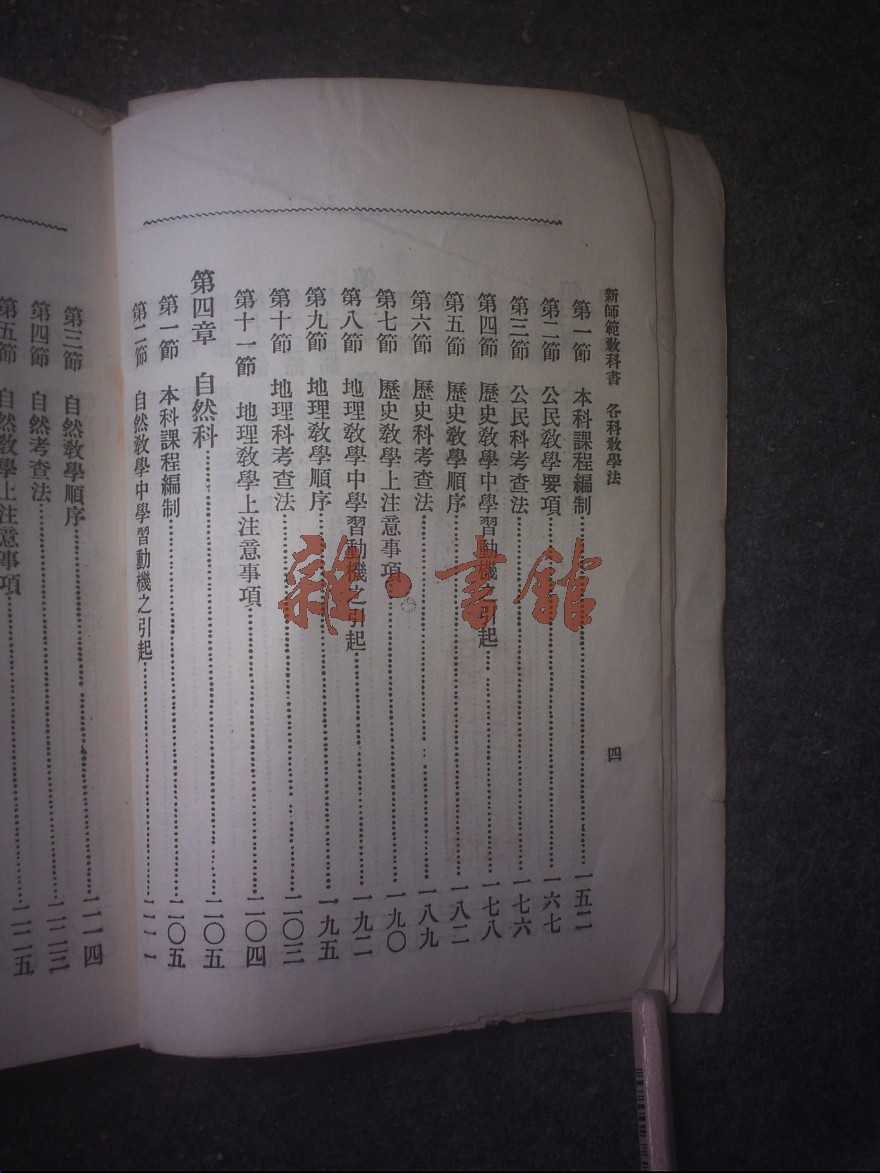 新師範教科書　各科教學法　四
第一節　本科課程編制…………一五二
第二節　公民教學要項…………一六七
第三節　公民科考查法…………一七六
第四節　歷史教學中學習動機之引起…………一七八
第五節　歷史教學順序…………一八二
第六節　歷史科考查法…………一八九
第七節　歷史教學上注意事項…………一九〇
第八節　地理教學中學習動機之引起…………一九二
第九節　地理教學順序…………一九五
第十節　地理科考查法…………二〇三
第十一節　地理教學上注意事項…………二〇四
第四章　自然科…………二〇五
第一節　本科課程編制…………二〇五
第二節　自然教學中學習動機之引起…………二一一
第三節　自然教學順序…………二一四
第四節　自然考查法…………二二三
第五節　自然教學上注意事項…………二二五
雜·書館